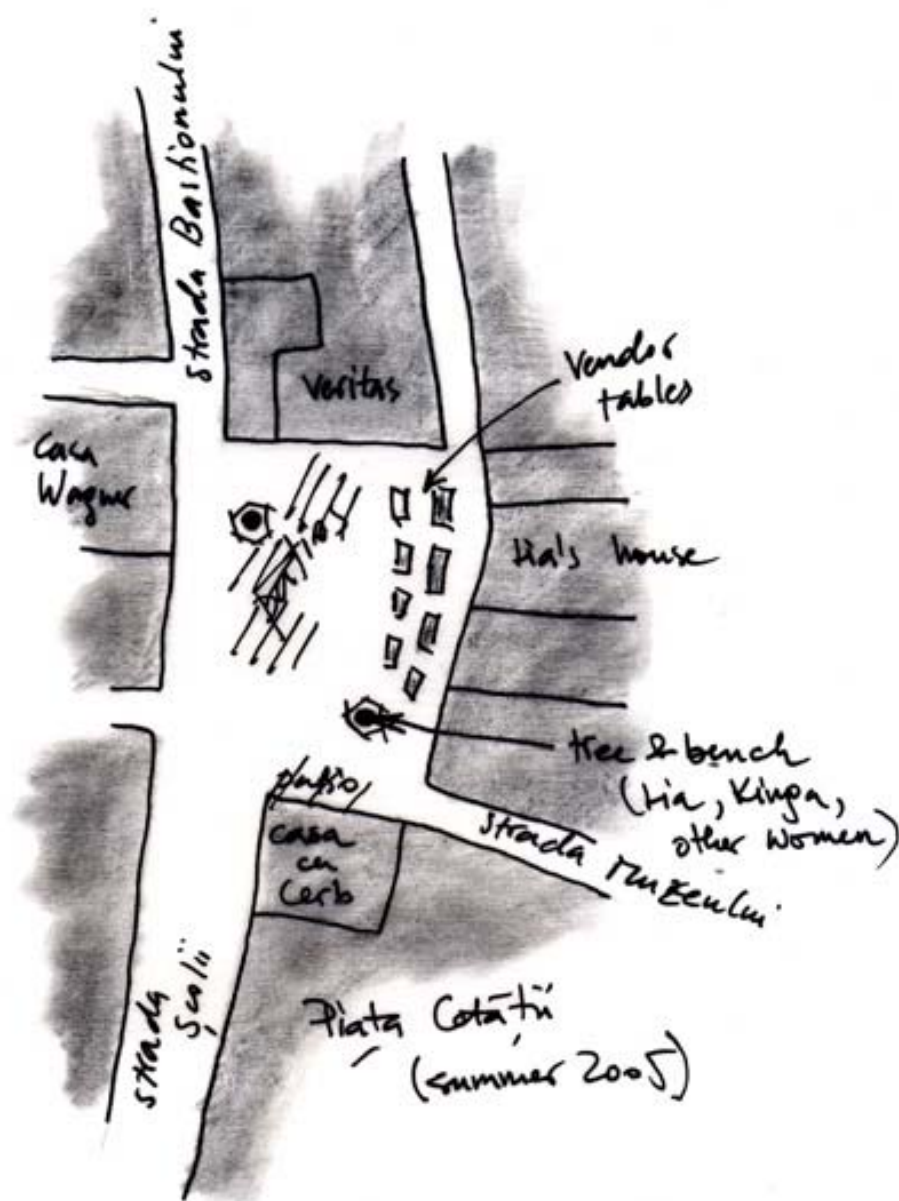 strada Bastionului
Vendor
tables
Veritas
Casa
Wagner
Lia's house
tree & bench
(Lia, Kinga,
other women)
patio
casa
cu
Cerb
strada Muzeului
strada
Școlii
Piața Cetății
(summer 2005)